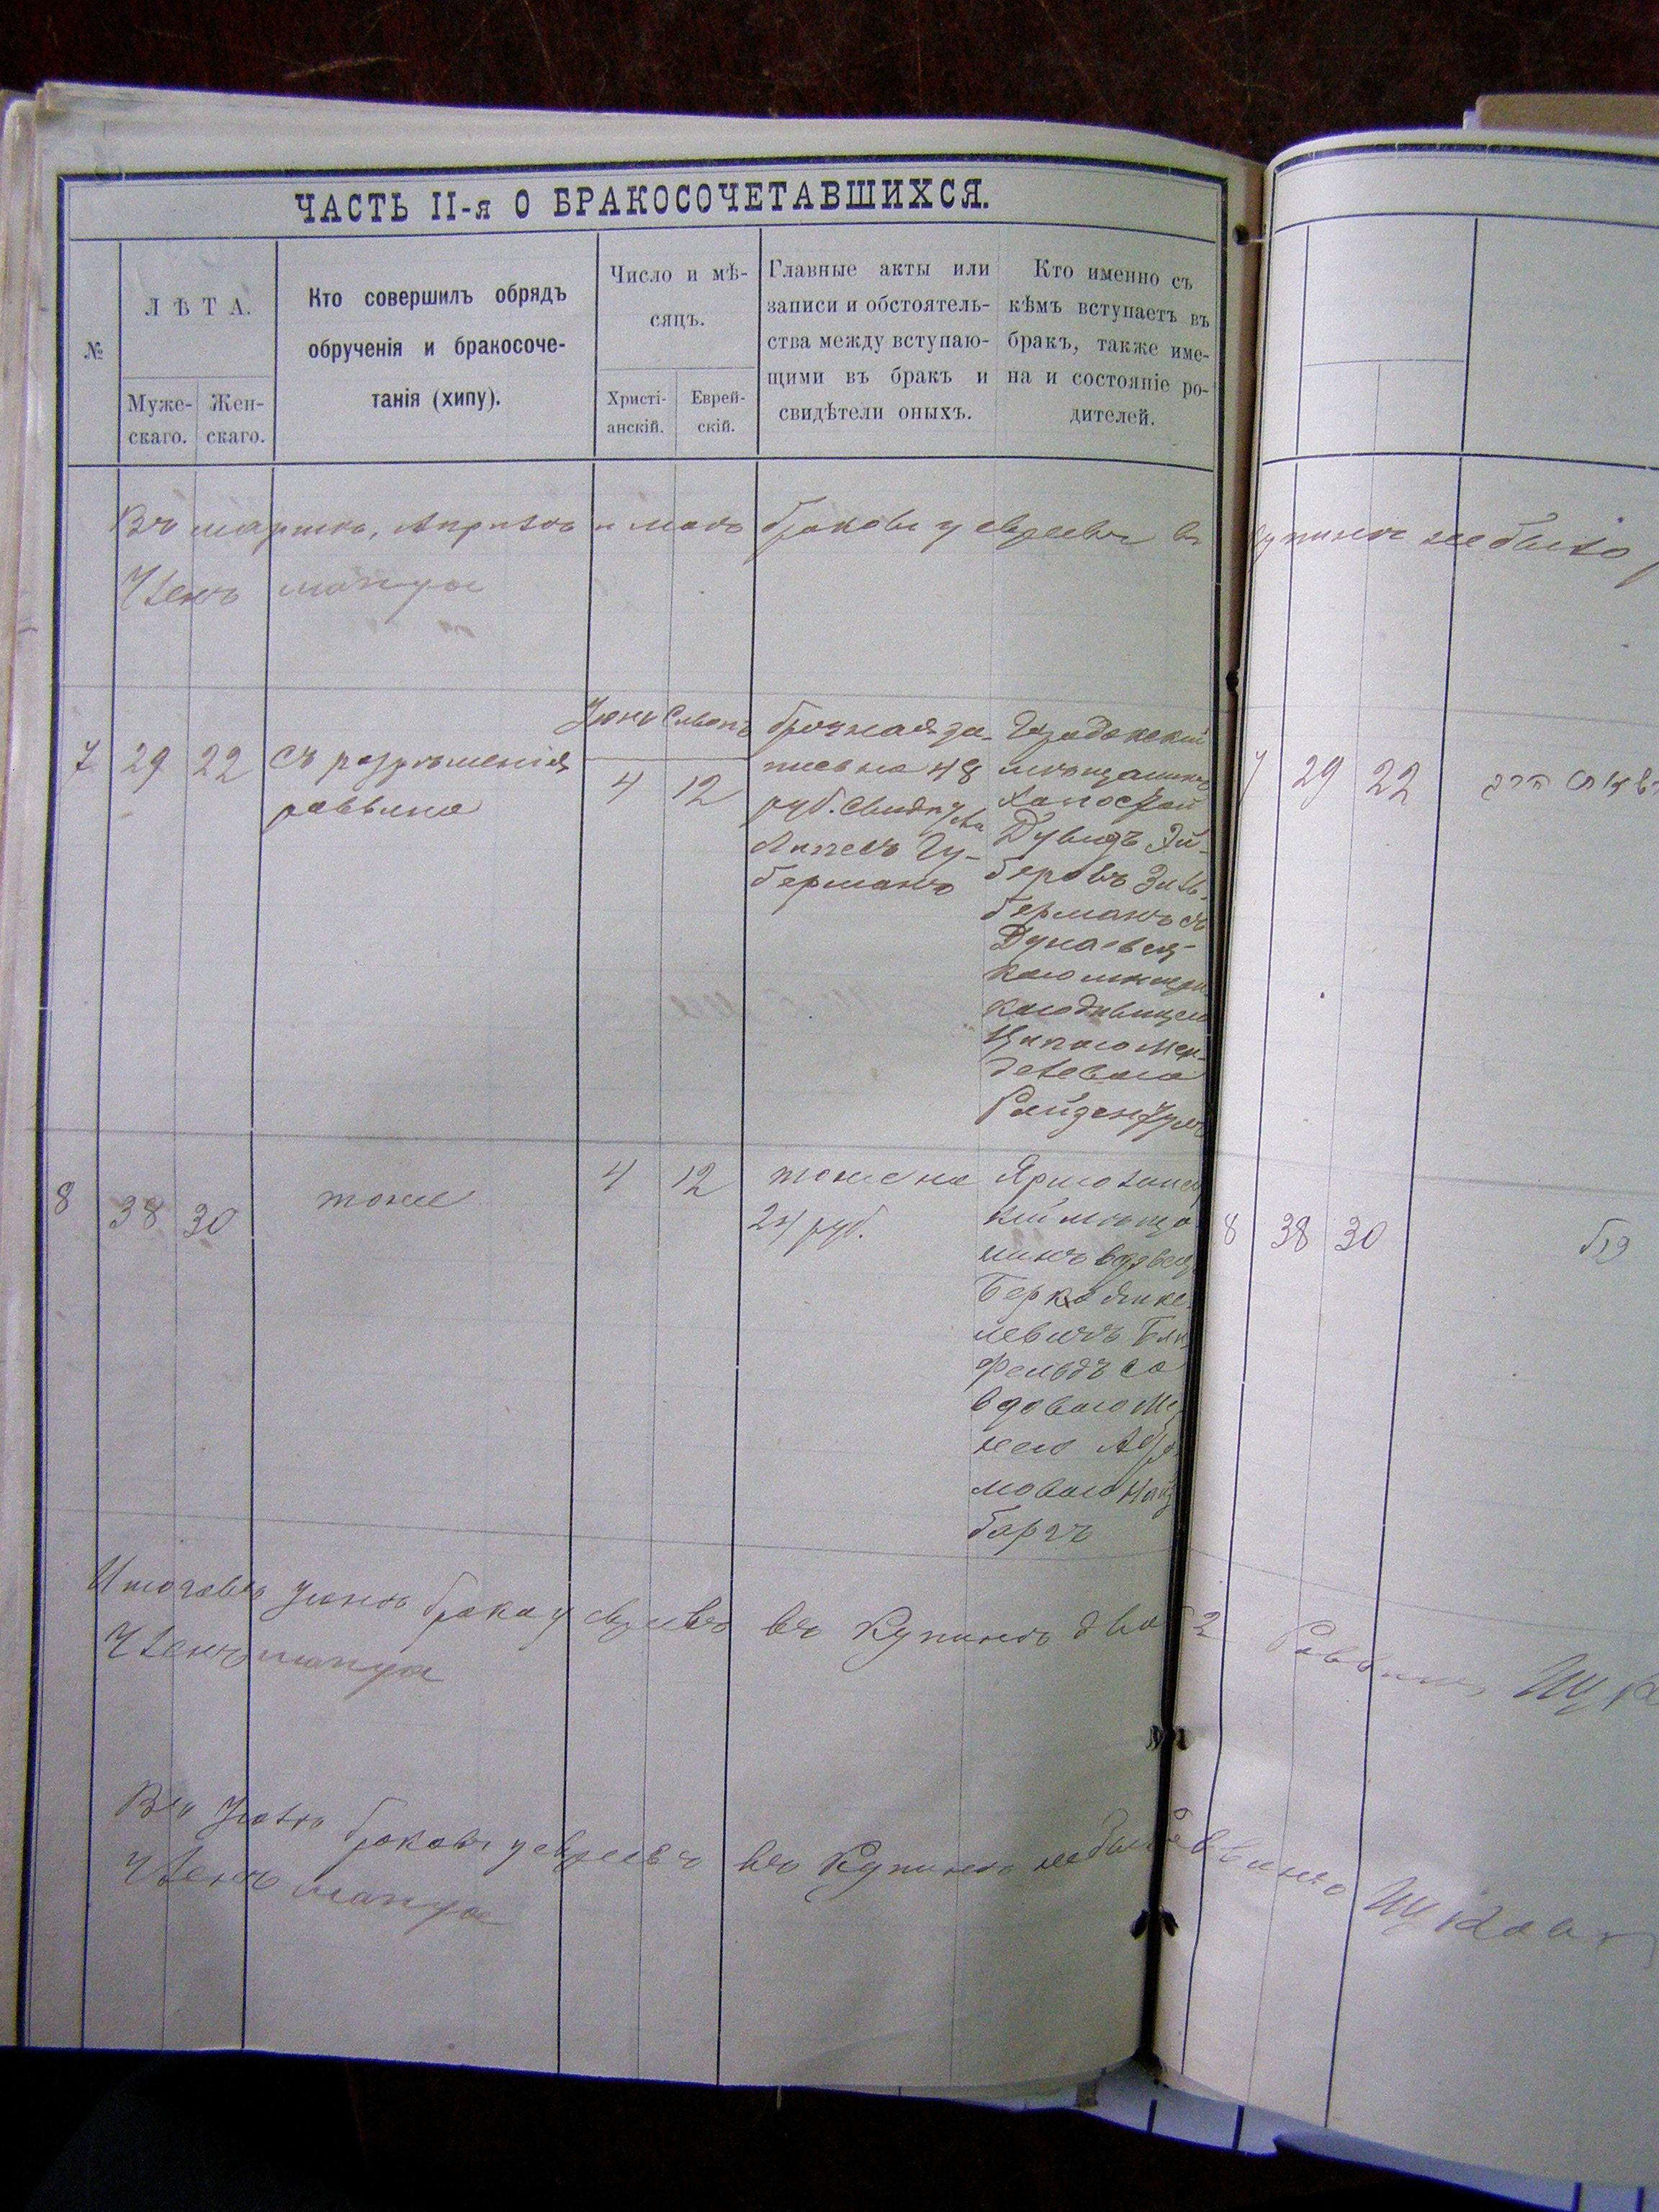 ЧАСТЬ II-я О БРАКОСОЧЕТАВШИХСЯ.
№
ЛѢТА.
Муже-
скаго.
Жен-
скаго.
Кто совершилъ обрядъ
обрученія и бракосоче-
танія (хипу).
Число и мѣ-
сяцъ.
Христі-
анскій.
Еврей-
скій.
Главные акты или
записи и обстоятель-
ства между вступаю-
щими въ бракъ и
свидѣтели оныхъ.
Кто именно съ
кѣмъ вступаетъ въ
бракъ, также име-
на и состояніе ро-
дителей.
Въ мартѣ, Апрѣлѣ и маѣ браковъ у евреевъ въ Купинѣ не было
Членъ
7 29 22
съ разрѣшенія
раввина
Іюнь Сивонъ
4 12
брачная за-
пись на 48
руб. Свидѣт
Гу-
берманъ
мѣщанинъ
холостой
Дувидъ
беровъ Зиль-
берманъ съ
Дунаевец-
кою мѣщан
кою дѣвицею
Мен-
делевою
7 29 22
8 38 30
тоже
4 12
тоже на
24 руб.
Ярмолинец
кій мѣща
нинъ вдовец
Берко Янке
левичъ
фельдъ со
вдовою
Абра
мовою
баргъ
8 38 30
Итого въ Іюнѣ брака у евреевъ въ Купинѣ два 2 Раввинъ
Членъ
Въ Іюлѣ браковъ у евреевъ въ Купинѣ не было Раввинъ
Членъ